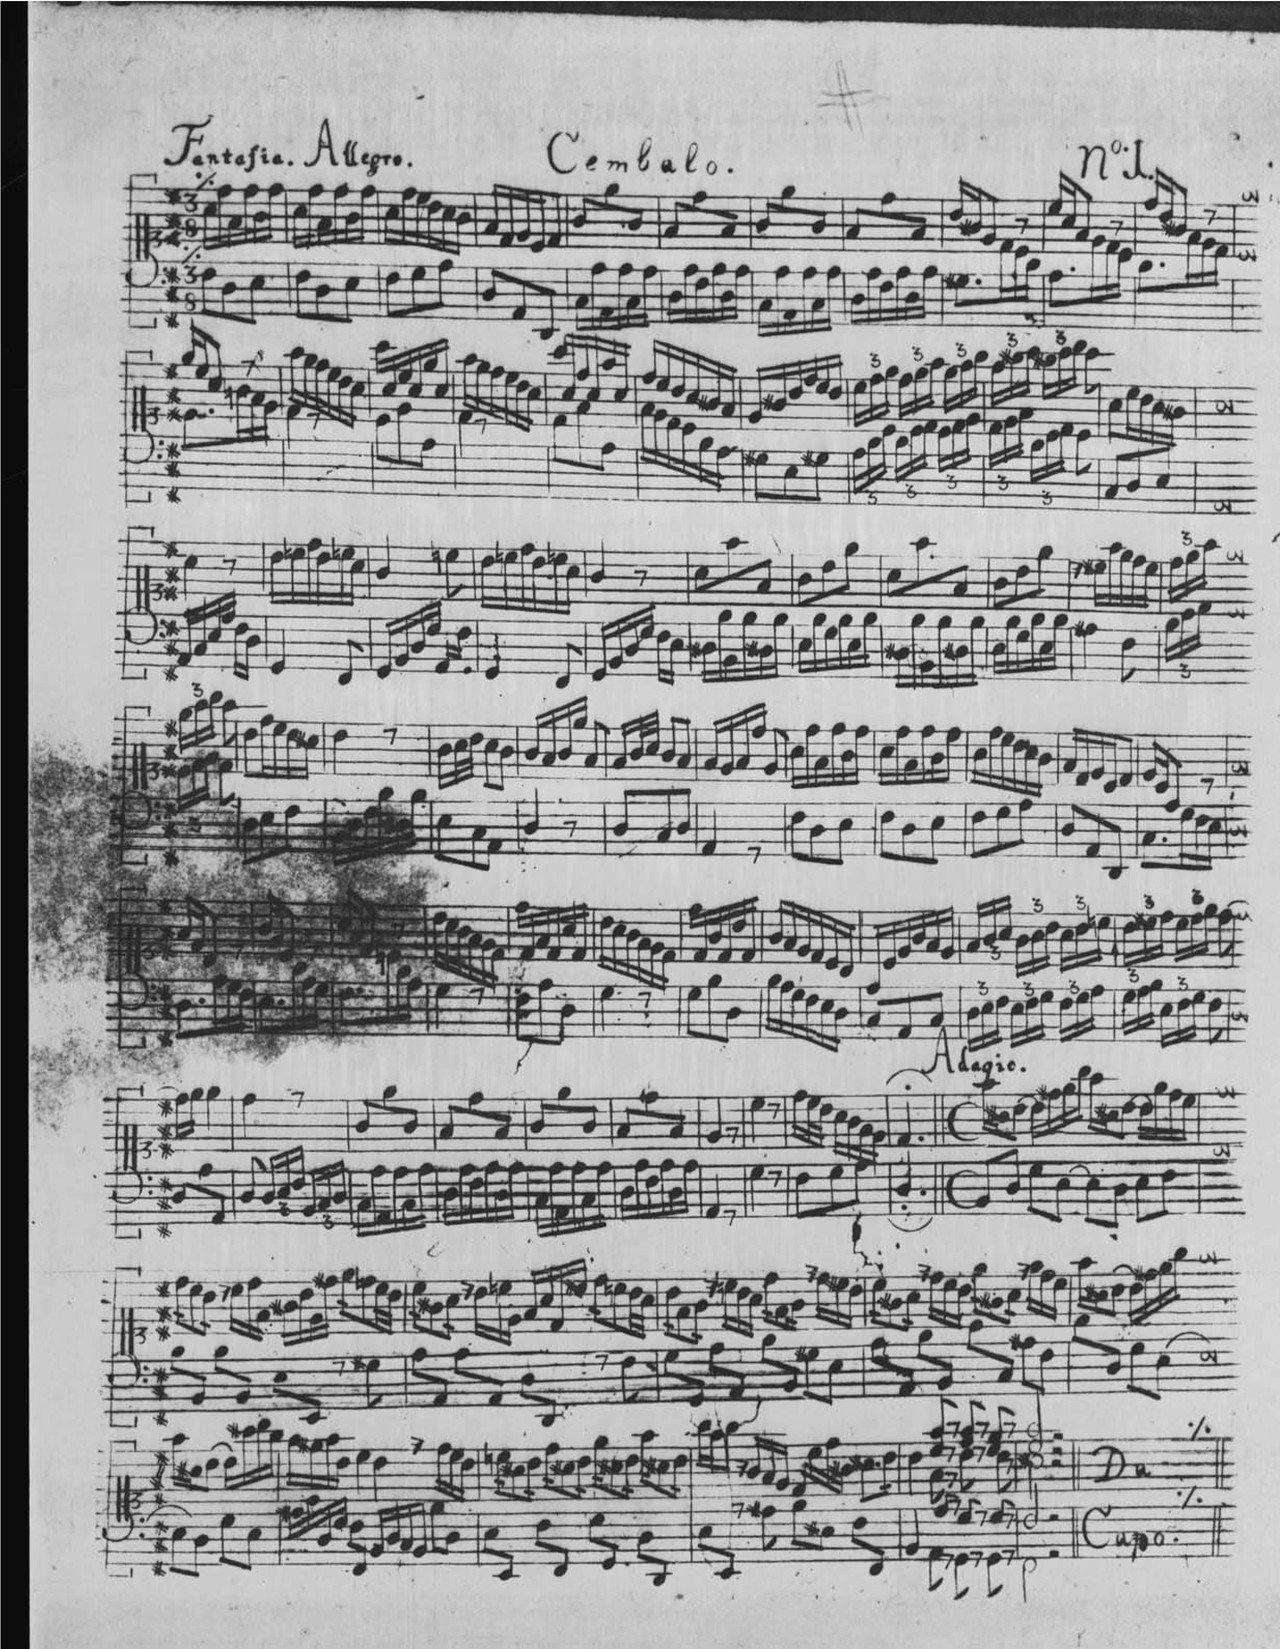 Fantasia. Allegro. Cembalo. No. 1.
Adagio.
Da
Capo.